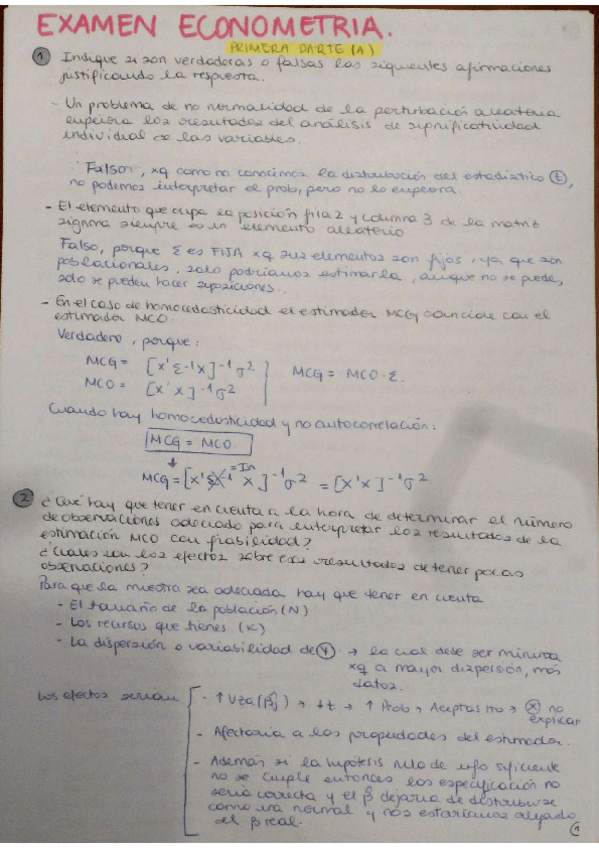 EXAMEN ECONOMETRIA.
PRIMERA PARTE (A)
1 Indique si son verdaderas o falsas las siguientes afirmaciones
justificando la respuesta.
- Un problema de no normalidad de la perturbación aleatoria
empeora los resultados del análisis de significatividad
individual de las variables.
Falso, xq como no conocemos la distribución del estadístico t,
no podemos interpretar el prob, pero no lo empeora.
- El elemento que ocupa la posición fila 2 y columna 3 de la matriz
sigma siempre es un elemento aleatorio
Falso, porque Σ es FIJA xq sus elementos son fijos, ya que son
poblacionales, solo podríamos estimarla, aunque no se puede,
solo se pueden hacer suposiciones..
- En el caso de homocedasticidad el estimador MCG coincide con el
estimador MCO.
Verdadero, porque:
MCG = [X'Σ⁻¹X]⁻¹σ²
MCO = [X'X]⁻¹σ²
MCG = MCO·Σ.
Cuando hay homocedasticidad y no autocorrelación:
MCG = MCO.
↓
MCG = [X'Σ⁻¹ X]⁻¹σ² = [X'X]⁻¹σ²
= In
2 ¿Qué hay que tener en cuenta a la hora de determinar el número
de observaciones adecuado para interpretar los resultados de la
estimación MCO con fiabilidad?
¿Cuáles son los efectos sobre esos resultados de tener pocas
observaciones?
Para que la muestra sea adecuada hay que tener en cuenta
- El tamaño de la población (N)
- Los recursos que tienes (K)
- La dispersión o variabilidad de Y → la cual debe ser mínima
xq a mayor dispersión, más
datos.
Los efectos serían
- ↑ Vza(β̂j) → ↓t → ↑ Prob → Aceptas Ho → X no
explicar
- Afectaría a las propiedades del estimador.
- Además si la hipótesis nula de info suficiente
no se cumple entonces la especificación no
sería correcta y el β̂ dejaría de distribuirse
como una normal y nos estaríamos alejando
del β real.
1